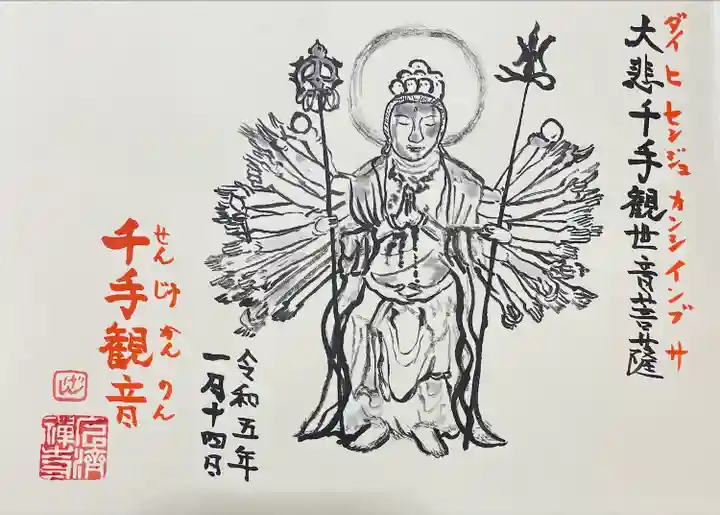 ダイ ヒ センジュ カンシ インブ サ
大悲千手観世音菩薩
令和五年
一月十四日
せん じゅ かん のん
千手観音